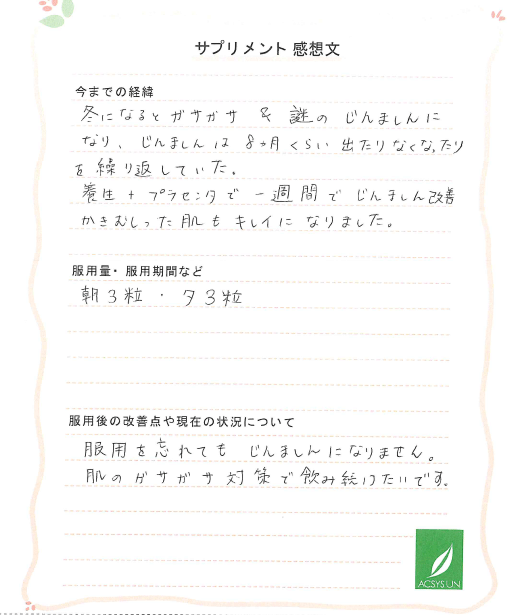 サプリメント 感想文
今までの経緯
冬になるとガサガサ & 謎の じんましんに
なり、じんましんは 8ヶ月くらい 出たりなくなったり
を繰り返していた。
養生 + プラセンタで 一週間で じんましん改善
かきむしった肌も キレイに なりました。
服用量・服用期間など
朝3粒 ・ 夕3粒
服用後の改善点や現在の状況について
服用を忘れても じんましんになりません。
肌のガサガサ対策で飲み続けたいです。
ACSYSUN